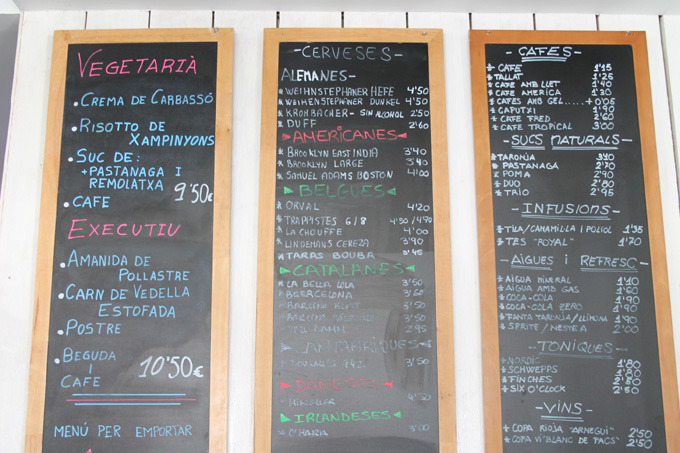 VEGETARIÀ
• CREMA DE CARBASSÓ
• RISOTTO DE
XAMPINYONS
• SUC DE:
+ PASTANAGA I
REMOLATXA
9'50€
• CAFE
EXECUTIU
• AMANIDA DE
POLLASTRE
• CARN DE VEDELLA
ESTOFADA
• POSTRE
• BEGUDA
I
CAFE
10'50€
MENÚ PER EMPORTAR
- CERVESES -
ALEMANES -
WEIHNSTEPHANER HEFE 4'50
WEIHENSTEPHANER DUNKEL 4'50
KROMBACHER - SIN ALCOHOL 2'50
DUFF 2'60
AMERICANES
BROOKLYN EAST INDIA 3'40
BROOKLYN LARGE 3'40
SAMUEL ADAMS BOSTON 4'00
BELGUES
ORVAL 4'20
TRAPPISTES 6/8 4'50/4'90
LA CHOUFFE 4'00
LINDEMANS CEREZA 3'90
TARAS BOUBA 4'45
CATALANES
LA BELLA LOLA 3'50
BEERCELONA 3'60
3'50
3'50
2'95
3'50
DANESES
4'50
IRLANDESES
O'HARA 3'50
- CAFES -
CAFE 1'15
TALLAT 1'25
CAFE AMB LLET 1'40
CAFE AMERICA 1'30
CAFES AMB GEL..... +0'05
CAPUTXI 1'90
CAFE FRED 2'60
CAFE TROPICAL 3'00
SUCS NATURALS
TARONJA
PASTANAGA 2'70
POMA 2'90
DUO 2'80
TRIO 2'95
- INFUSIONS -
TILA/CAMAMILLA I POLIOL 1'35
TES "ROYAL" 1'70
- AIGUES I REFRESC -
AIGUA MINERAL 1'10
AIGUA AMB GAS 1'60
COCA-COLA 1'90
COCA-COLA ZERO 1'90
FANTA TARONJA/LLIMONA 1'90
SPRITE/NESTEA 2'00
- TONIQUES -
NORDIC 1'80
SCHWEPPS 1'80
FINCHES 2'50
SIX O'CLOCK 2'50
- VINS -
COPA RIOJA "ARNEGUI" 2'50
COPA VI "BLANC DE PACS" 2'50